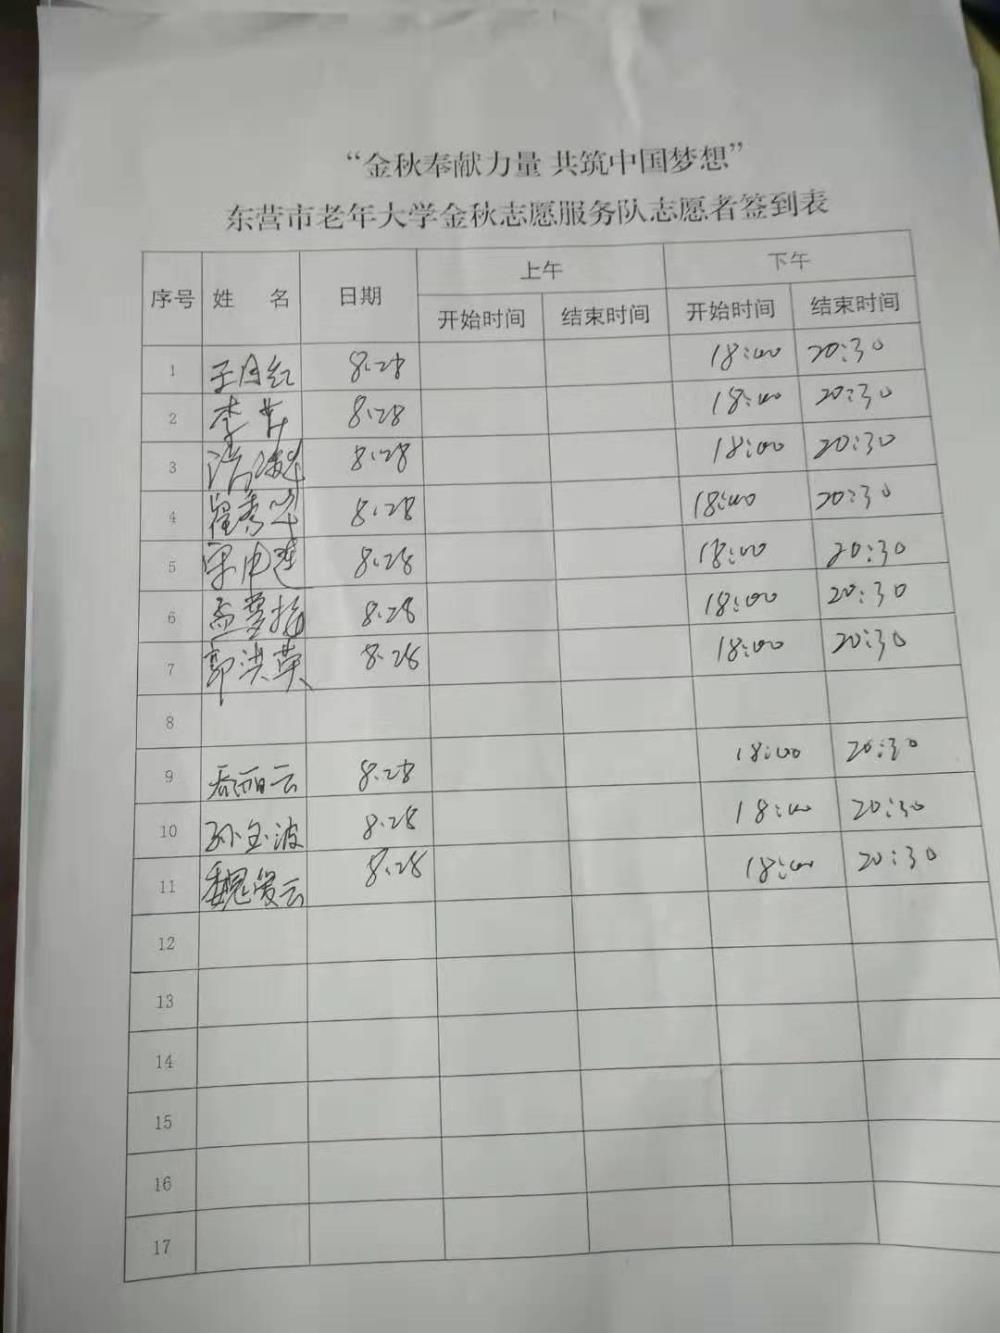 “金秋奉献力量 共筑中国梦想”
东营市老年大学金秋志愿服务队志愿者签到表
序号 姓 名 日期 上午 下午
开始时间 结束时间 开始时间 结束时间
1 王月红 8.28 18:00 20:30
2 李 8.28 18:00 20:30
3 8.28 18:00 20:30
4 翟秀 8.28 18:00 20:30
5 宋 莲 8.28 18:00 20:30
6 孟 8.28 18:00 20:30
7 郭洪英 8.28 18:00 20:30
8
9 云 8.28 18:00 20:30
10 孙玉波 8.28 18:00 20:30
11 魏爱云 8.28 18:00 20:30
12
13
14
15
16
17